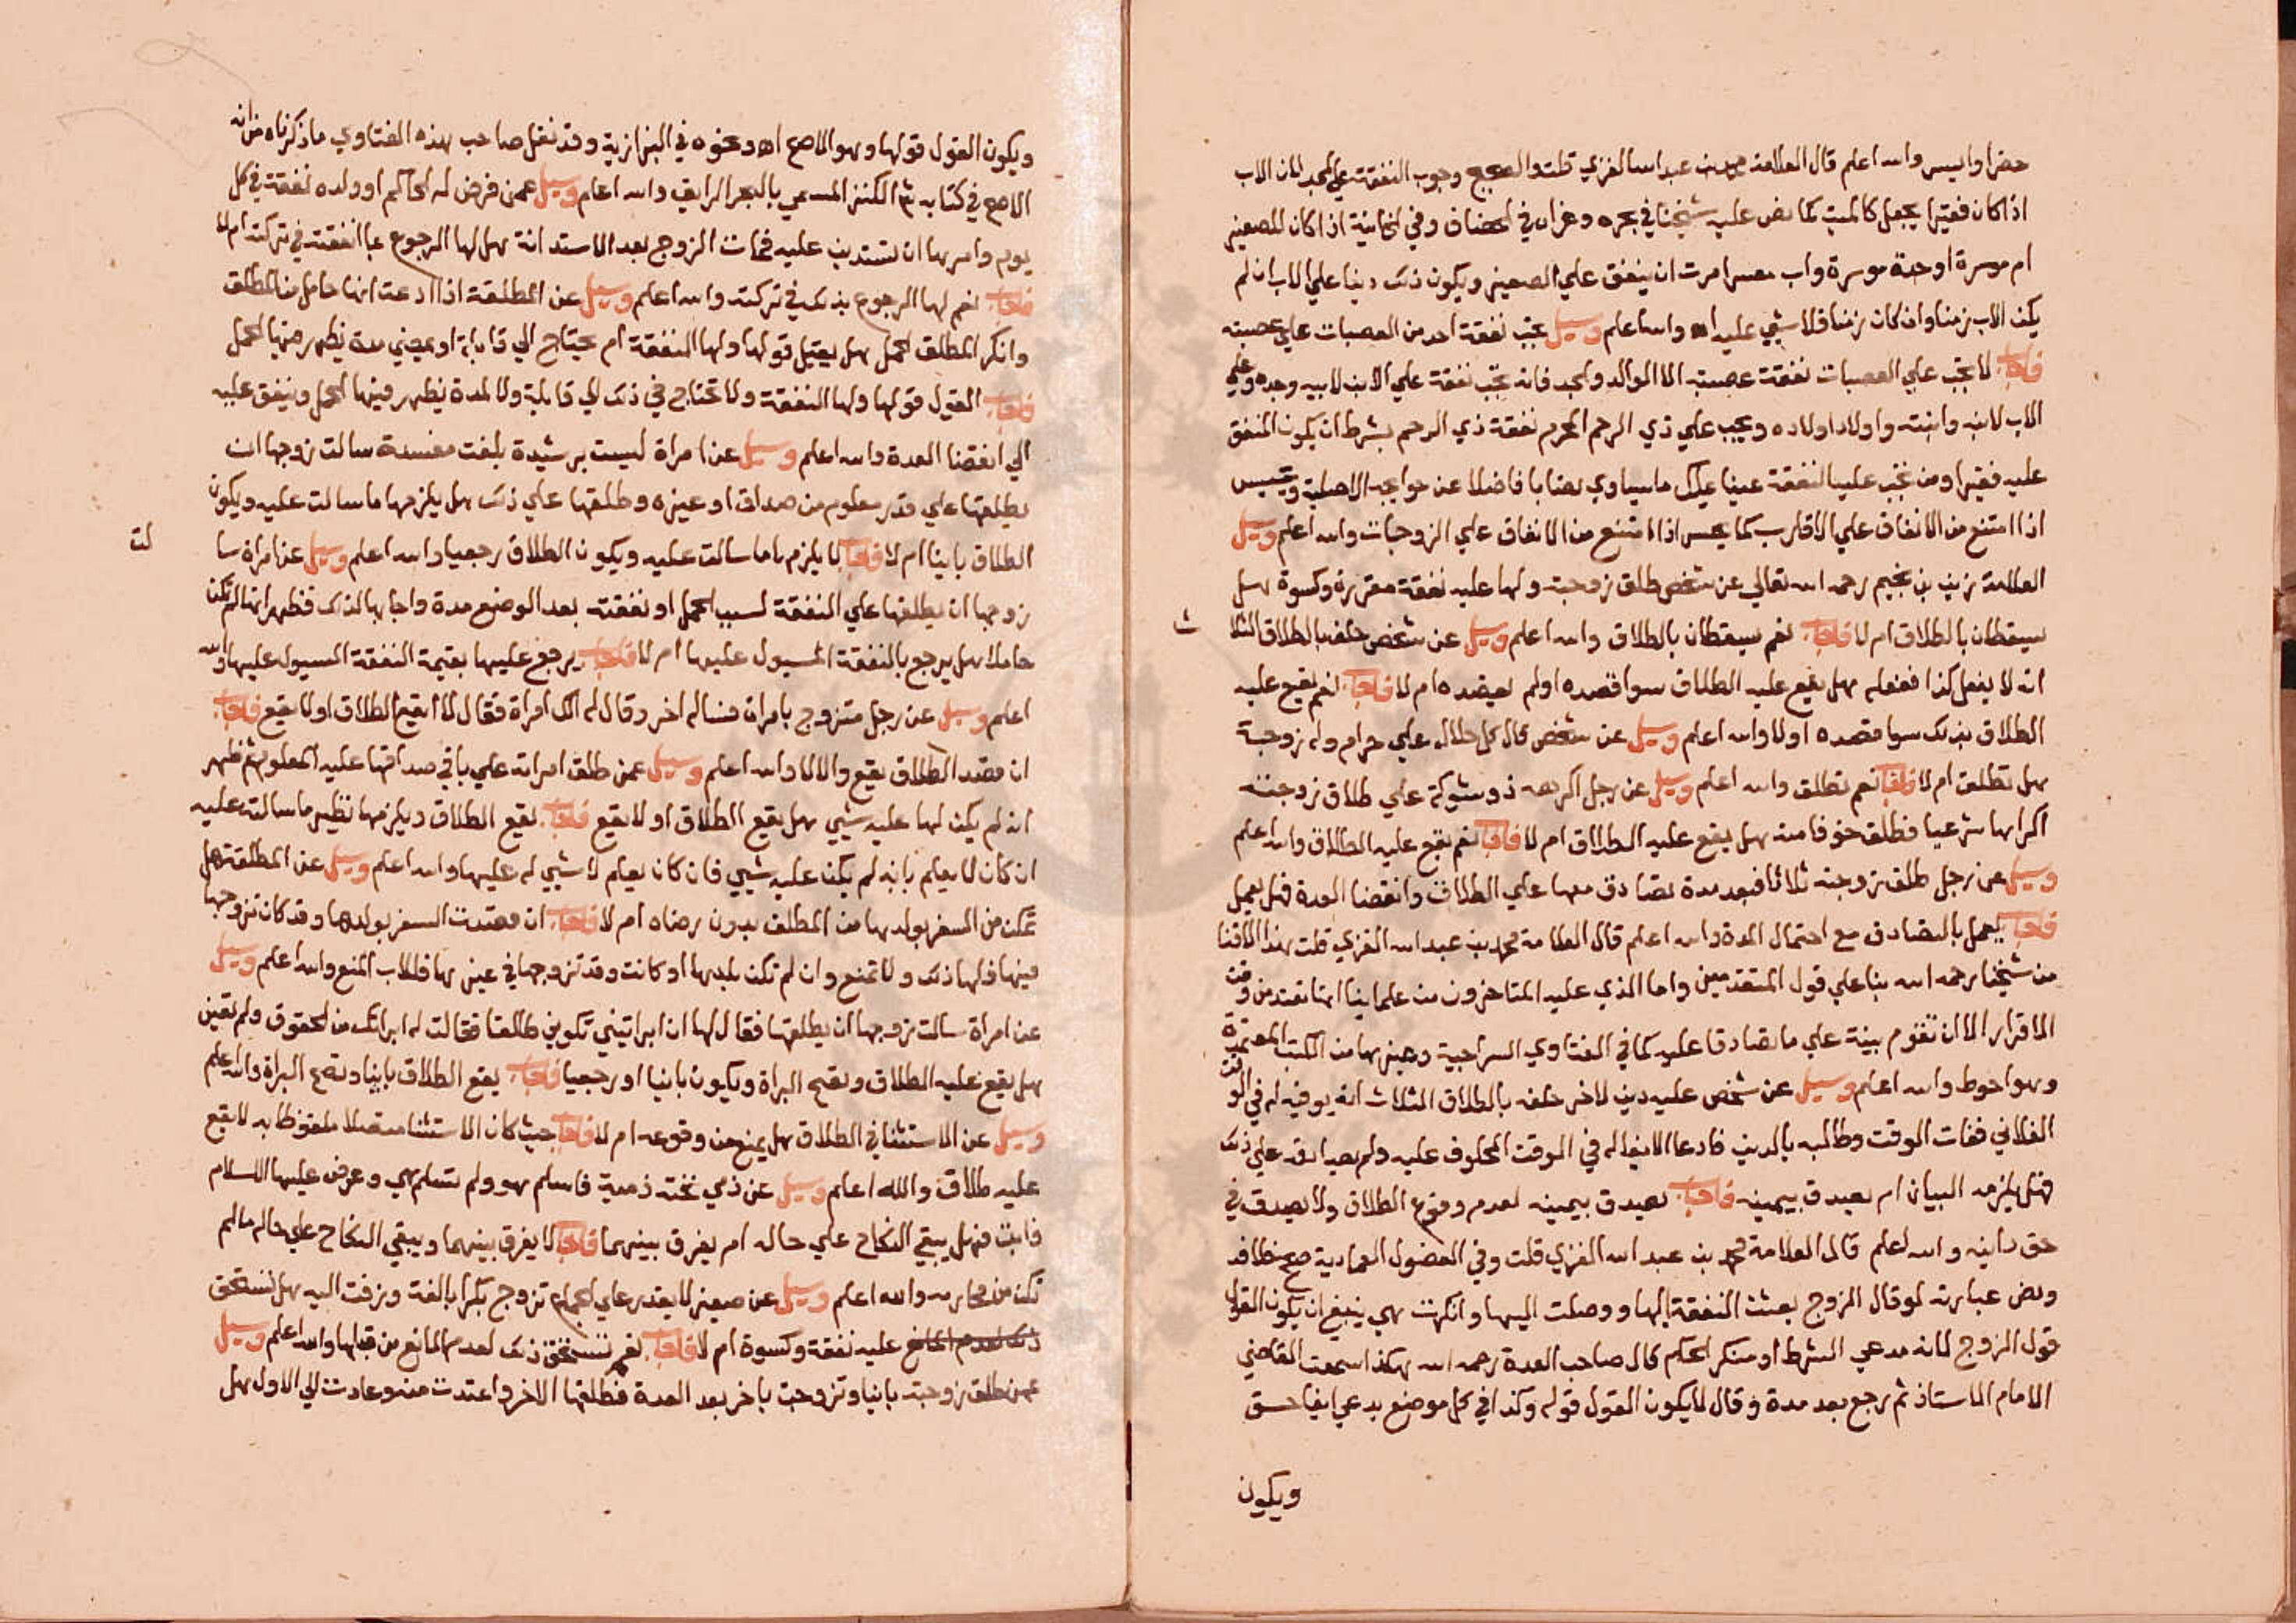 حضرا وايسر والله اعلم قال العلامة محمد بن عبد الله الغزي قلت والصحيح وجوب النفقة علي الجد لان الاب
اذا كان فقيرا يجعل كالميت كما نص عليه شيخنا في بحره وعزاه في الخصاف وفي الخانية اذا كان للصغير
ام موسرة او جدة موسرة واب معسر امرت ان ينفق علي الصغير ويكون ذلك دينا علي الاب ان لم
يكن الاب زمنا وان كان زمنا فلا شيي عليه اه والله اعلم وسيل يجب نفقة احد من العصبات علي عصبته
فاجاب لا يجب علي العصبات نفقة عصبته الا الوالد والجد فانه تجب نفقة علي الابن لابيه وجده وعلي
الاب لابنه وابنته واولاد اولاده ويجب علي ذي الرحم المحرم نفقة ذي الرحم بشرط ان يكون المنفق
عليه فقيرا ومن تجب عليه النفقة غنيا يملك ما يساوي نصابا فاضلا عن حوايجه الاصلية ويحبس
اذا امتنع من الانفاق علي الاقارب كما يحبس اذا امتنع من الانفاق علي الزوجات والله اعلم وسيل
العلامة زين بن نجيم رحمه الله تعالي عن شخص طلق زوجته ولها عليه نفقة مقررة وكسوة هل
يسقطان بالطلاق ام لا فاجاب نعم يسقطان بالطلاق والله اعلم وسيل عن شخص حلف بالطلاق الثلا ث
انه لا يفعل كذا ففعله هل يقع عليه الطلاق سوا قصده او لم يقصده ام لا فاجاب نعم يقع عليه
الطلاق بذلك سوا قصده او لا والله اعلم وسيل عن شخص قال كل حلال علي حرام وله زوجة
هل تطلق ام لا فاجاب نعم تطلق والله اعلم وسيل عن رجل اكرهه ذو شوكة علي طلاق زوجته
اكراها شرعيا فطلق خوفا منه هل يقع عليه الطلاق ام لا فاجاب نعم يقع عليه الطلاق والله اعلم
وسيل عن رجل طلق زوجته ثلاثا فبعد مدة تصادق معها علي الطلاق وانقضا العدة فهل يعمل
فاجاب يعمل بالتصادق مع احتمال المدة والله اعلم قال العلامة محمد بن عبد الله الغزي قلت هذا الافتا
من شيخنا رحمه الله بنا علي قول المتقدمين واما الذي عليه المتاخرون من علماينا انها تعتد من وقت
الاقرار الا ان تقوم بينة علي ما تصادقا عليه كما في الفتاوي السراجية وغيرها من الكتب المعتبرة
وهو احوط والله اعلم وسيل عن شخص عليه دين لاخر حلف بالطلاق الثلاث انه يوفيه له في الوقت
الفلاني ففات الوقت وطالبه بالدين فادعا الايفا له في الوقت المحلوف عليه ولم يصادق علي ذلك
فهل يلزمه البيان ام يصدق بيمينه فاجاب يصدق بيمينه لعدم وقوع الطلاق ولا يصدق في
حق داينه والله اعلم قال العلامة محمد بن عبد الله الغزي قلت وفي الفصول العمادية
ونص عبارته لو قال الزوج بعثت النفقة اليها ووصلت اليها وانكرت هي ينبغي ان يكون القول
قول الزوج لانه مدعي الشرط او منكر الحكم قال صاحب العدة رحمه الله هكذا سمعت القاضي
الامام الاستاذ ثم رجع بعد مدة وقال لا يكون القول قوله وكذا في كل موضع يدعي ايفا حق
ويكون
ويكون القول قولها وهو الاصح اه ونحوه في البزازية وقد نقل صاحب هذه الفتاوي ما ذكرناه من انه
الاصح في كتابه شرح الكنز المسمي بالبحر الرايق والله اعلم وسيل عمن فرض له الحاكم او ولده نفقة في كل
يوم وامرها ان تستدين عليه فمات الزوج بعد الاستدانة هل لها الرجوع بما انفقته في تركته ام لا
فاجاب نعم لها الرجوع بذلك في تركته والله اعلم وسيل عن المطلقة اذا ادعت انها حامل من المطلق
وانكر المطلق الحمل هل يقبل قولها ولها النفقة ام يحتاج الي قابلة او يمضي مدة يظهر منها الحمل
فاجاب القول قولها ولها النفقة ولا تحتاج في ذلك الي قابلة ولا لمدة يظهر فيها الحمل وينفق عليه
الي انقضا العدة والله اعلم وسيل عن امراة ليست برشيدة بلغت مفسدة سالت زوجها ان
يطلقها علي قدر معلوم من صداق او غيره وطلقها علي ذلك هل يلزمها ما سالت عليه ويكون
الطلاق باينا ام لا فاجاب لا يلزمها ما سالت عليه ويكون الطلاق رجعيا والله اعلم وسيل عن امراة سا لت
زوجها ان يطلقها علي النفقة لسبب الحمل او نفقته بعد الوضع مدة واجابها لذلك فظهر انها لم تكن
حاملا هل يرجع بالنفقة المسيول عليها ام لا فاجاب يرجع عليها بقيمة النفقة المسيوله عليها والله
اعلم وسيل عن رجل متزوج بامراة فساله اخر وقال له الك امراة فقال لا ايقع الطلاق او لا يقع فاجاب
ان قصد الطلاق يقع والا لا والله اعلم وسيل عمن طلق امراته علي باقي صداقها عليه المعلوم ثم ظهر
انه لم يكن لها عليه شيي هل يقع الطلاق او لا يقع فاجاب يقع الطلاق ويلزمها نظير ما سالت عليه
ان كان لا يعلم بانه لم يكن عليه شيي فان كان يعلم لا شيي له عليها والله اعلم وسيل عن المطلقة هل
تمكن من السفر بولدها من المطلق بدون رضاه ام لا فاجاب ان قصدت السفر بولدها وقد كان تزوجها
فيها فلها ذلك ولا تمنع وان لم تكن بلدها او كانت وقد تزوجها في غيرها فللاب المنع والله اعلم وسيل
عن امراة سالت زوجها ان يطلقها فقال لها ان ابراتيني تكوني طالقا فقالت له ابراتك من الحقوق ولم تعين
هل يقع عليه الطلاق وتصح البراة ويكون باينا او رجعيا فاجاب يقع الطلاق باينا وتصح البراة والله اعلم
وسيل عن الاستثنا في الطلاق هل يمنع من وقوعه ام لا فاجاب حيث كان الاستثنا متصلا ملفوظا به لا يقع
عليه طلاق والله اعلم وسيل عن ذمي تحته ذمية فاسلم هو ولم تسلم هي وعرض عليها الاسلام
فابت فهل يبقي النكاح علي حاله ام يفرق بينهما فاجاب لا يفرق بينهما ويبقي النكاح علي حاله مالم
تكن من محارمه والله اعلم وسيل عن صغير لا يقدر علي الجماع تزوج بكرا بالغة وزفت اليه هل تستحق
عليه نفقة وكسوة ام لا فاجاب نعم تستحق ذلك لعدم المانع من قبلها والله اعلم وسيل
عمن طلق زوجته باينا وتزوجت باخر بعد العدة فطلقها الاخر واعتدت منه وعادت الي الاول هل